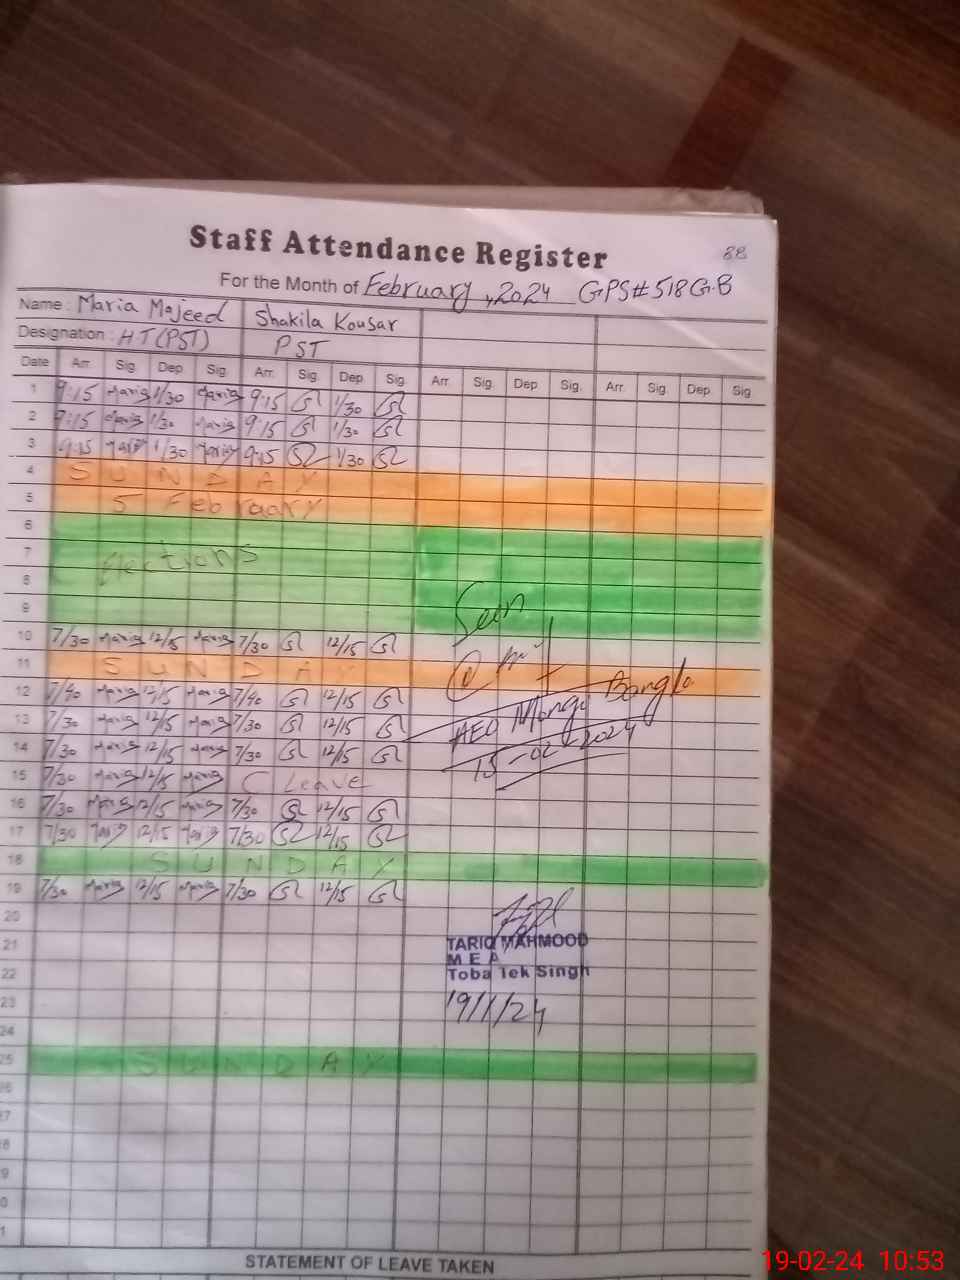 Staff Attendance Register
88
For the Month of February, 2024 GPS#518 G.B
Name: Maria Majeed Shakila Kousar
Designation: HT(PST) PST
Date Arr. Sig. Dep. Sig. Arr. Sig. Dep. Sig. Arr. Sig. Dep. Sig. Arr. Sig. Dep. Sig.
1 9:15 Maria 1/30 Maria 9:15 1/30
2 9:15 Maria 1/30 Maria 9:15 1/30
3 9:15 Maria 1/30 Maria 9:15 1/30
4 SUNDAY
5 5 February
6
7 Elections
8
9
Seen
10 7/30 Maria 12/15 Maria 7/30 12/15
11 SUNDAY
12 7/40 Maria 12/15 Maria 7/40 12/15
AEO Mongi Bangla
13 7/30 Maria 12/15 Maria 7/30 12/15
14 7/30 Maria 12/15 Maria 7/30 12/15
15-02-2024
15 7/30 Maria 12/15 Maria C Leave
16 7/30 Maria 12/15 Maria 7/30 12/15
17 7/30 Maria 12/15 Maria 7/30 12/15
18 SUNDAY
19 7/30 Maria 12/15 Maria 7/30 12/15
20
21 TARIQ MAHMOOD
M E A
22 Toba Tek Singh
23 19/1/24
24
25 SUNDAY
26
27
28
29
30
31
STATEMENT OF LEAVE TAKEN
19-02-24 10:53